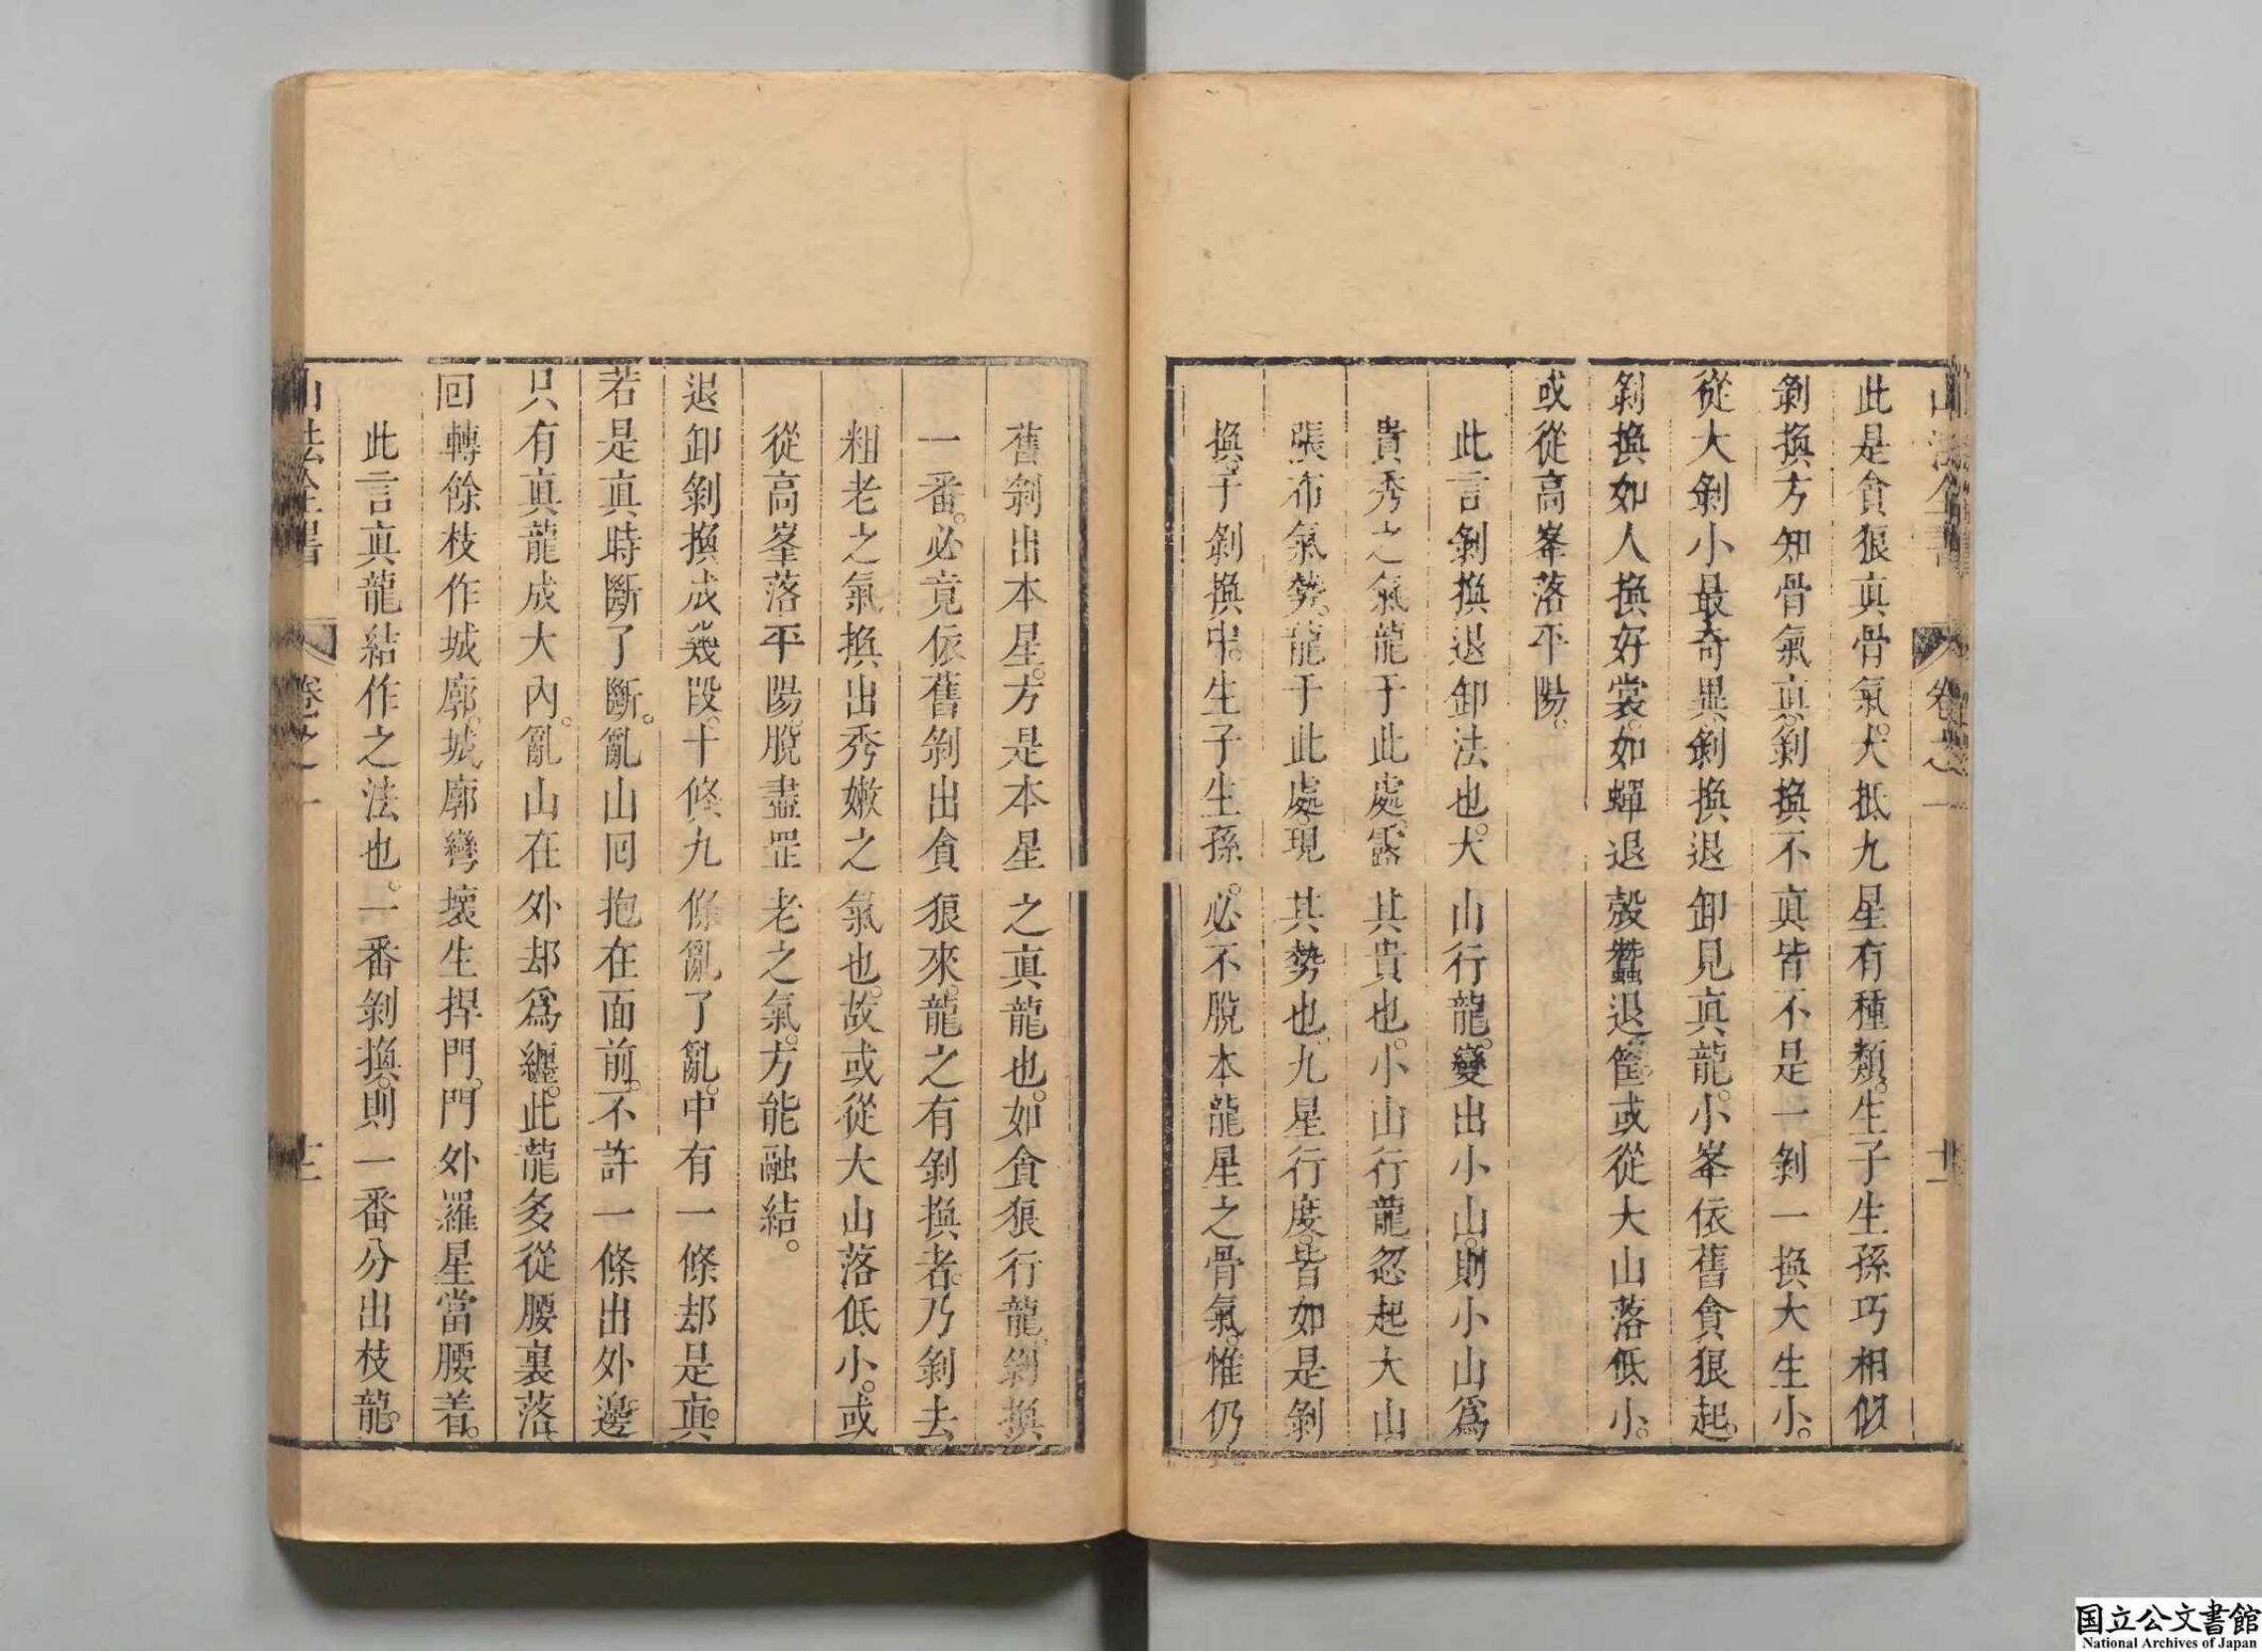 山法全書 卷之一 十一
此是貪狼真骨氣。大抵九星有種類。生子生孫巧相似
剝換方知骨氣真。剝換不真皆不是一剝一換大生小。
從大剝小最奇異。剝換退卸見真龍。小峯依舊貪狼起。
剝換如人換好裳。如蟬退殼蠶退筐。或從大山落低小。
或從高峯落平陽。
此言剝換退卸法也。大山行龍。變出小山。則小山爲
貴秀之氣龍于此處。露其貴也。小山行龍忽起大山
張布氣勢。龍于此處。現其勢也。九星行度。皆如是剝
換。于剝換中。生子生孫。必不脫本龍星之骨氣。惟仍
舊剝出本星。方是本星之真龍也。如貪狼行龍。剝換
一番。必竟依舊剝出貪狼來。龍之有剝換者。乃剝去
粗老之氣換出秀嫩之氣也。故或從大山落低小。或
從高峯落平陽。脫盡罡老之氣。方能融結。
退卸剝換成幾段。十條九條亂了亂。中有一條却是真。
若是真時斷了斷。亂山回抱在面前。不許一條出外邊
只有真龍成大內。亂山在外却爲纏。此龍多從腰裏落
回轉餘枝作城廓。城廓彎環生捍門。門外羅星當腰着。
此言真龍結作之法也。一番剝換。則一番分出枝龍。
山法全書 卷之一 十二
国立公文書館
National Archives of Japan